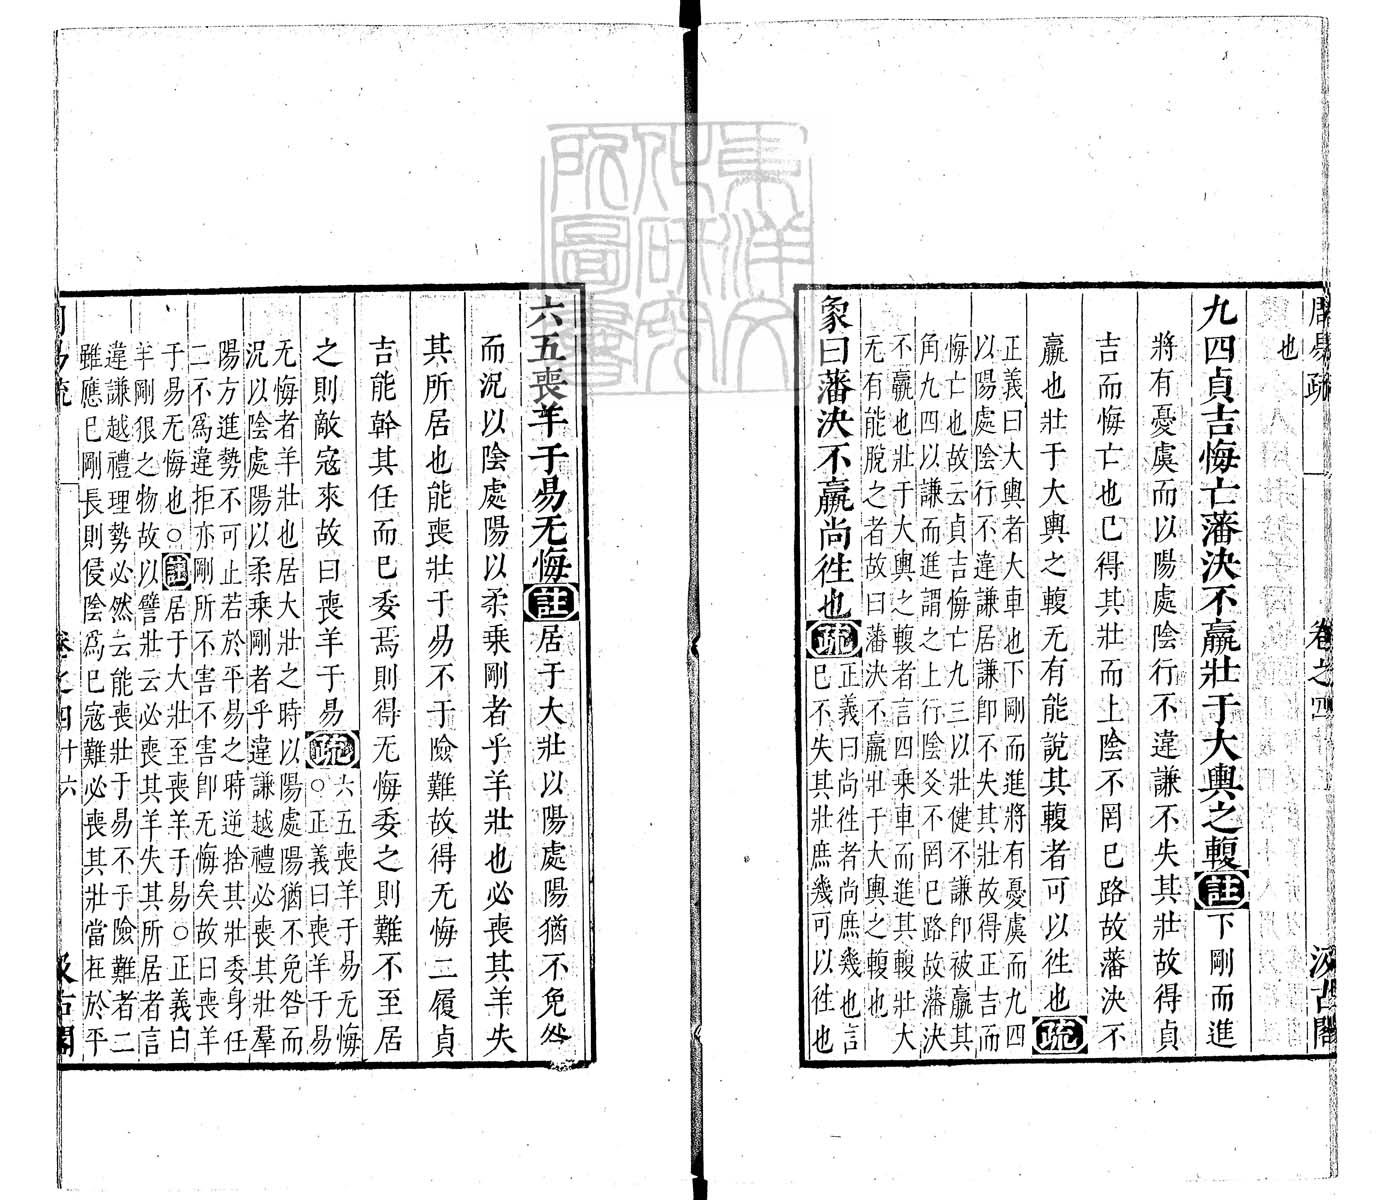 周易疏
卷之四
汲古閣
也
九四貞吉悔亡藩決不羸壯于大輿之輹註下剛而進
將有憂虞而以陽處陰行不違謙不失其壯故得貞
吉而悔亡也已得其壯而上陰不罔已路故藩決不
羸也壯于大輿之輹无有能說其輹者可以徃也疏
正義曰大輿者大車也下剛而進將有憂虞而九四
以陽處陰行不違謙居謙卽不失其壯故得正吉而
悔亡也故云貞吉悔亡九三以壯健不謙卽被羸其
角九四以謙而進謂之上行陰爻不罔已路故藩決
不羸也壯于大輿之輹者言四乘車而進其輹壯大
无有能脫之者故曰藩決不羸壯于大輿之輹也
象曰藩決不羸尚徃也疏正義曰尚徃者尚庶幾也言
已不失其壯庶幾可以徃也
六五喪羊于易无悔註居于大壯以陽處陽猶不免咎
而況以陰處陽以柔乘剛者乎羊壯也必喪其羊失
其所居也能喪壯于易不于險難故得无悔二履貞
吉能幹其任而已委焉則得无悔委之則難不至居
之則敵寇來故曰喪羊于易疏六五喪羊于易无悔
○正義曰喪羊于易
无悔者羊壯也居大壯之時以陽處陽猶不免咎而
況以陰處陽以柔乘剛者乎違謙越禮必喪其壯羣
陽方進勢不可止若於平易之時逆捨其壯委身任
二不爲違拒亦剛所不害不害卽无悔矣故曰喪羊
于易无悔也○註居于大壯至喪羊于易○正義曰
羊剛狠之物故以譬壯云必喪其羊失其所居者言
違謙越禮理勢必然云能喪壯于易不于險難者二
雖應已剛長則侵陰爲已寇難必喪其壯當在於平
周易疏
卷之四
十六
汲古閣
東洋文化研究所圖書